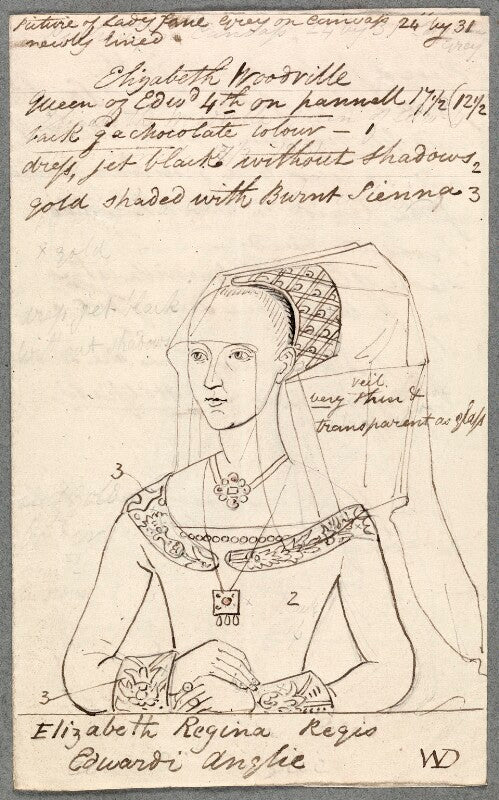 Picture of Lady Jane Grey on Canvass 24 by 31
newly lined
Elizabeth Woodville
Queen of Edwd 4th on pannell 17 1/2 (12 1/2
back g a chocolate colour – 1
dress, jet black without shadows 2
gold shaded with Burnt Sienna 3
x gold
jet black
shadows
veil
very thin &
transparent as glass
3
2
3
Elizabeth Regina Regis
Edwardi Anglie
WD